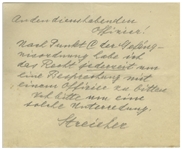 An den diensthabenden
Offizier!
Nach Punkt C der Gefäng-
nisordnung habe ich
das Recht jederzeit um
eine Besprechung mit
einem Offizier zu bitten.
Ich bitte um eine
solche Unterredung.
Streicher